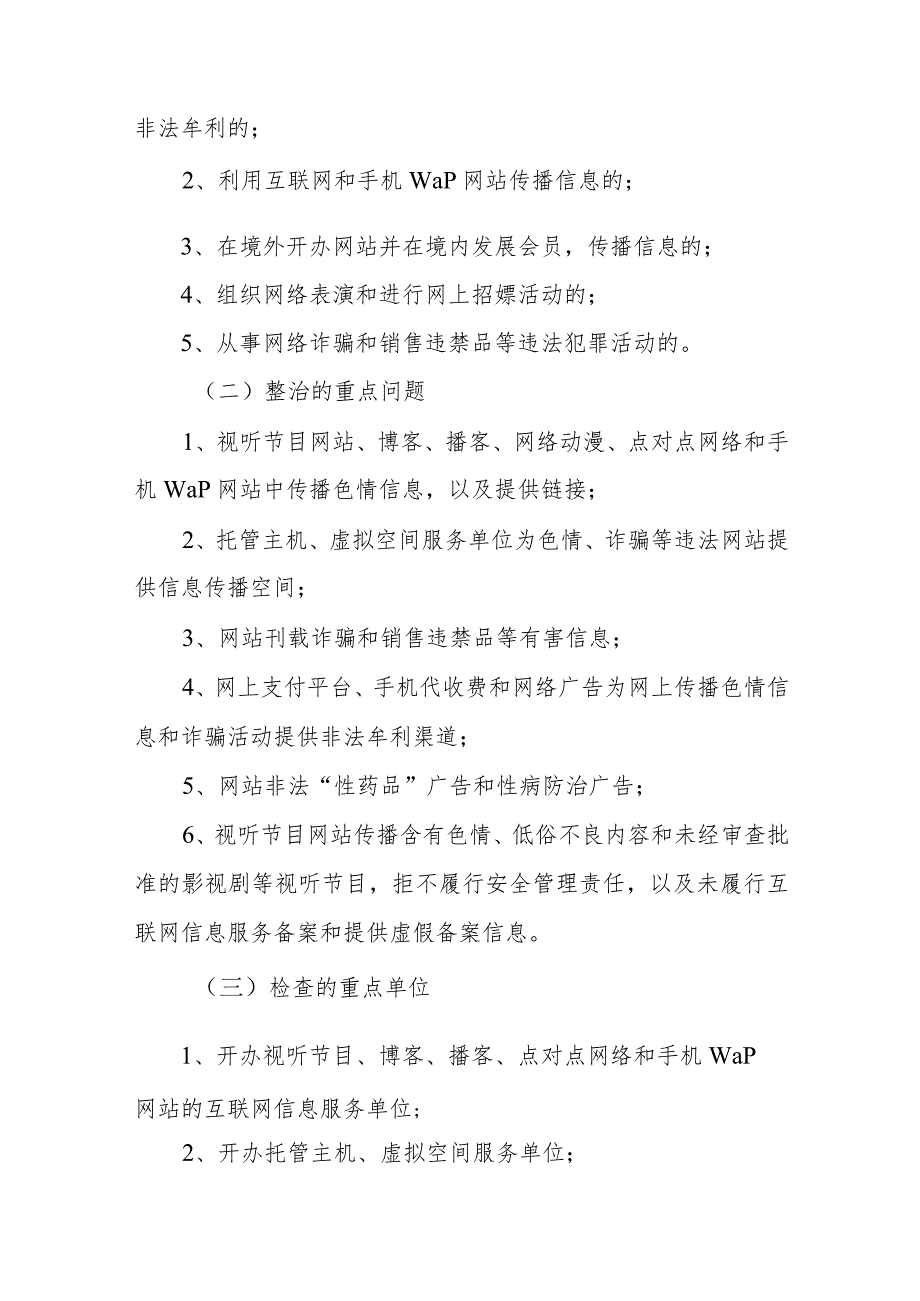 非法牟利的；
2、利用互联网和手机WaP网站传播信息的；
3、在境外开办网站并在境内发展会员，传播信息的；
4、组织网络表演和进行网上招嫖活动的；
5、从事网络诈骗和销售违禁品等违法犯罪活动的。
（二）整治的重点问题
1、视听节目网站、博客、播客、网络动漫、点对点网络和手
机WaP网站中传播色情信息，以及提供链接；
2、托管主机、虚拟空间服务单位为色情、诈骗等违法网站提
供信息传播空间；
3、网站刊载诈骗和销售违禁品等有害信息；
4、网上支付平台、手机代收费和网络广告为网上传播色情信
息和诈骗活动提供非法牟利渠道；
5、网站非法“性药品”广告和性病防治广告；
6、视听节目网站传播含有色情、低俗不良内容和未经审查批
准的影视剧等视听节目，拒不履行安全管理责任，以及未履行互
联网信息服务备案和提供虚假备案信息。
（三）检查的重点单位
1、开办视听节目、博客、播客、点对点网络和手机WaP
网站的互联网信息服务单位;
2、开办托管主机、虚拟空间服务单位；